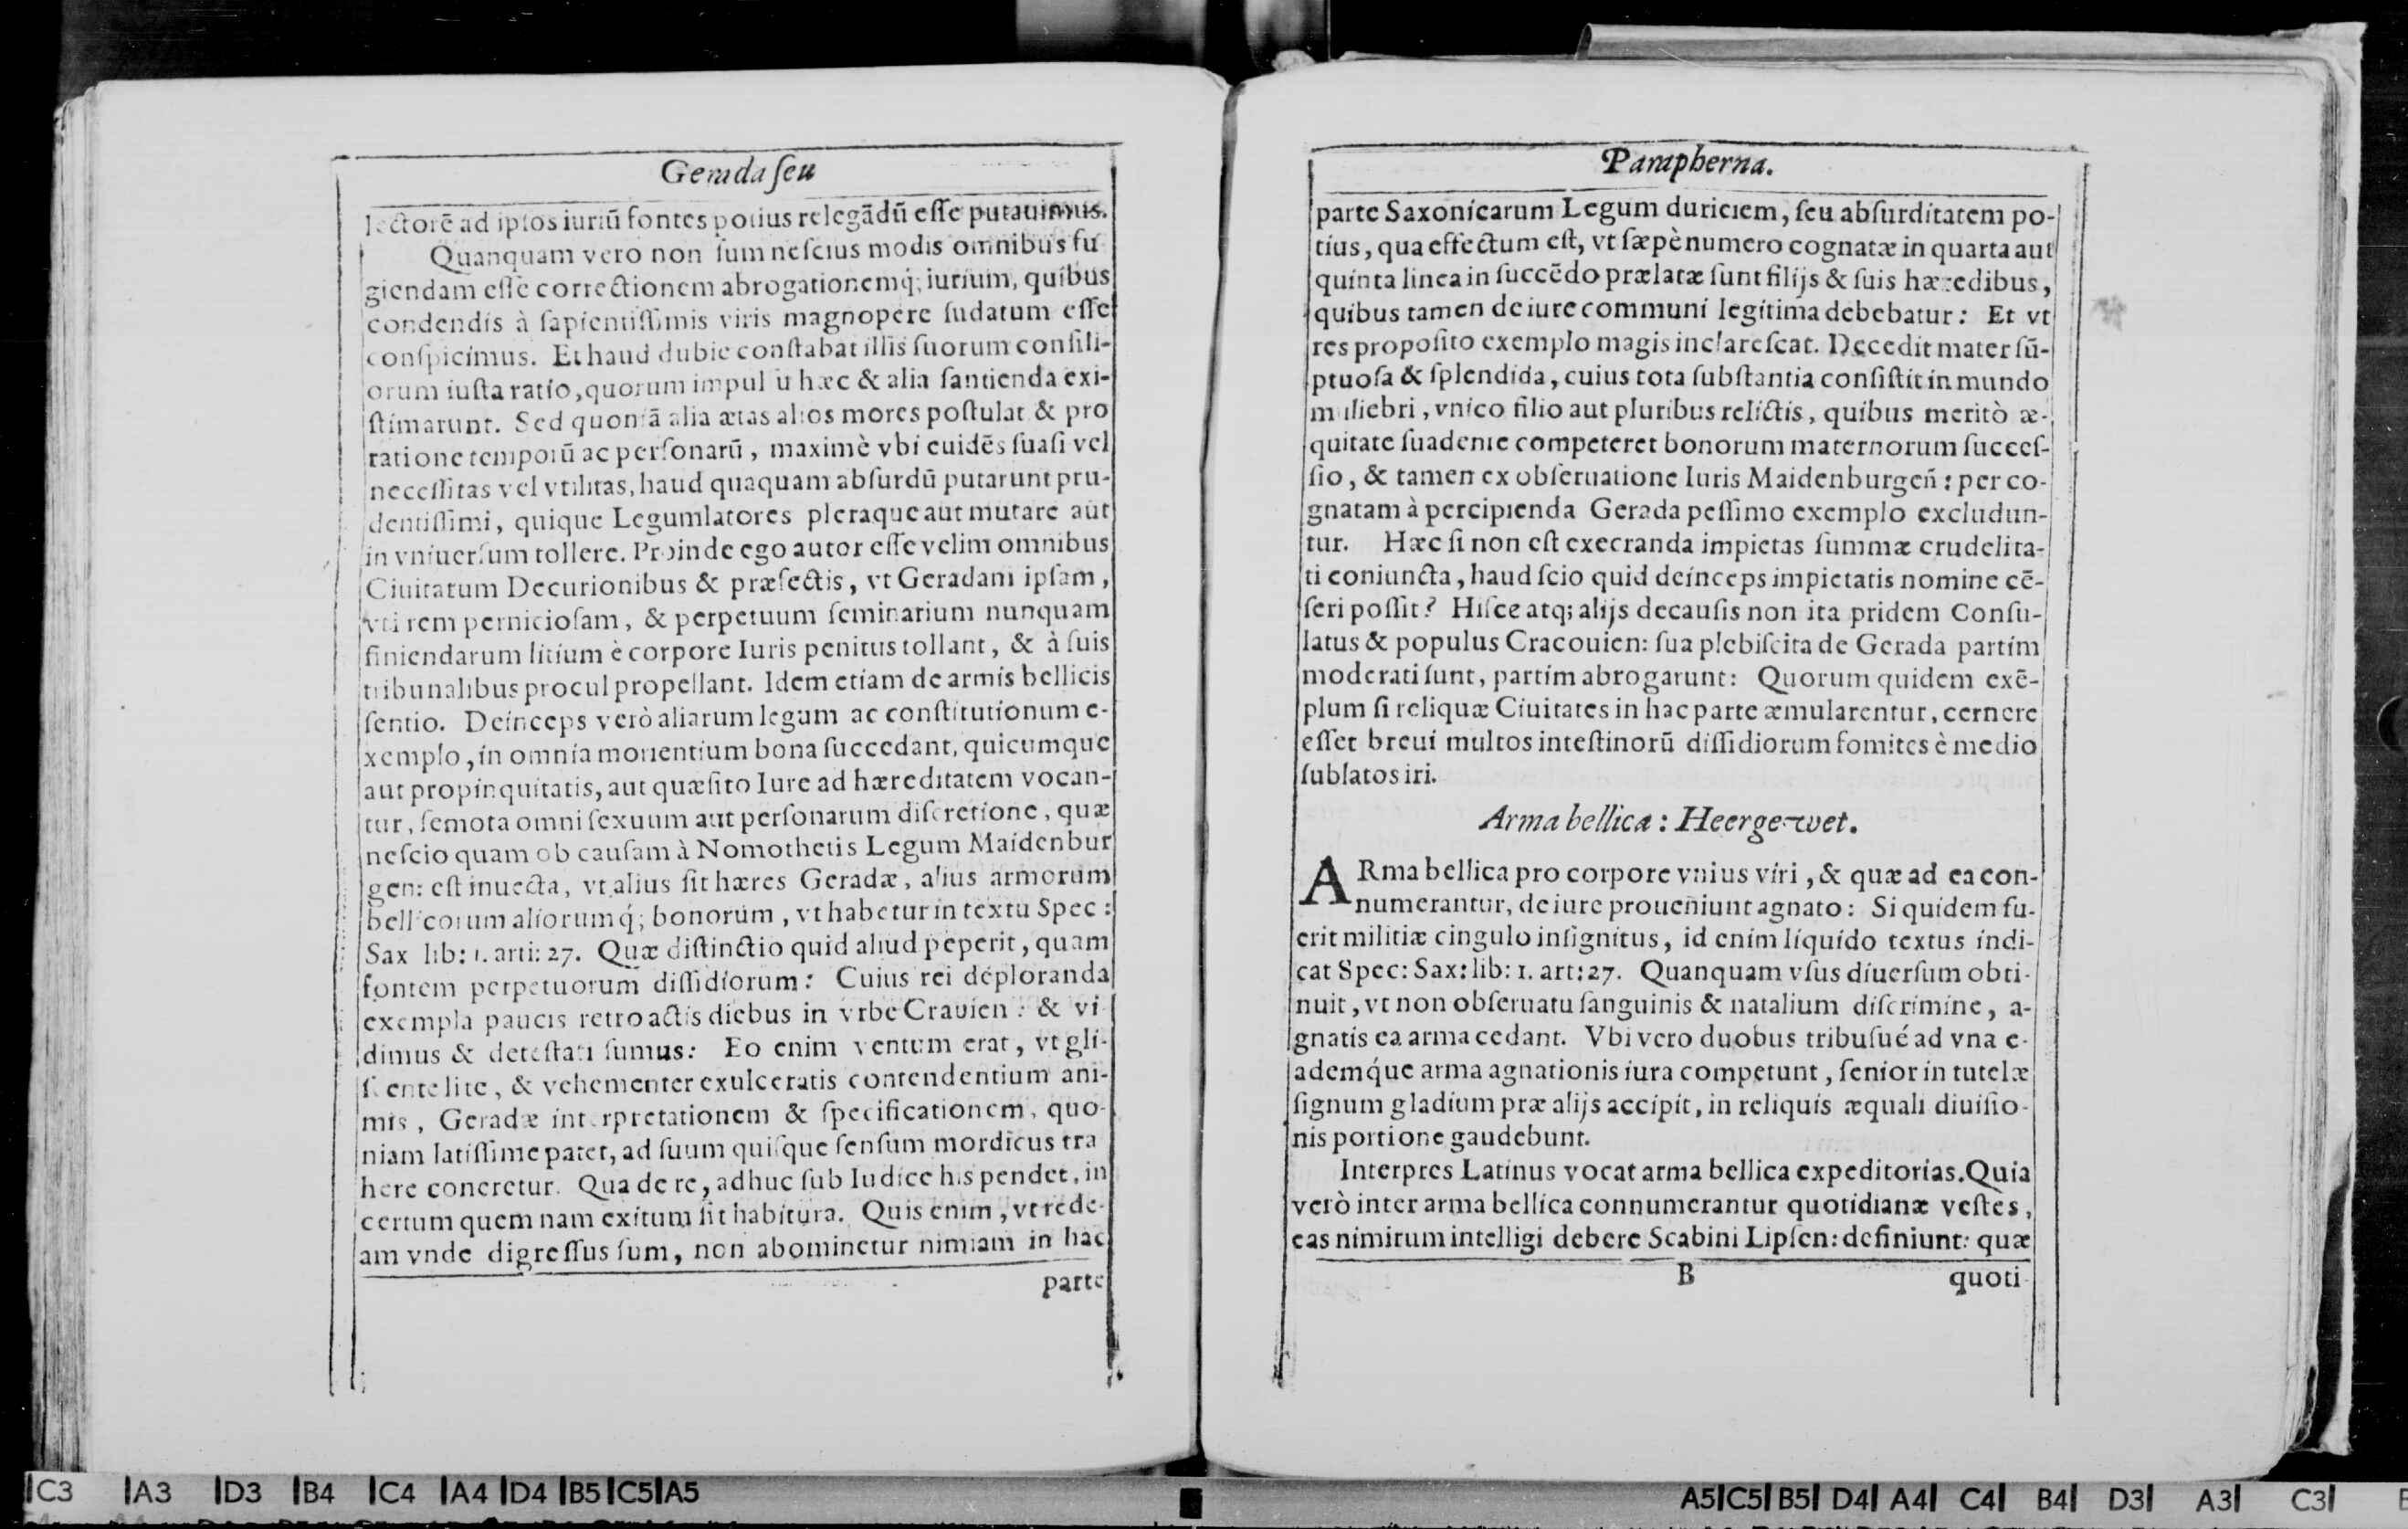 Gerada ſeu
lectorē ad ipſos iuriū fontes potius relegādū eſſe putauimus.
Quanquam vero non ſum neſcius modis omnibus fu
giendam eſſe correctionem abrogationemq́; iurium, quibus
condendis à ſapientiſſimis viris magnopere ſudatum eſſe
conſpicimus. Et haud dubie conſtabat illis ſuorum conſili-
orum iuſta ratio, quorum impulſu hæc & alia ſantienda exi-
ſtimarunt. Sed quoniā alia ætas alios mores poſtulat & pro
ratione temporū ac perſonarū, maximè vbi euidēs ſuaſi vel
neceſſitas vel vtilitas, haud quaquam abſurdū putarunt pru-
dentiſſimi, quique Legumlatores pleraque aut mutare aut
in vniuerſum tollere. Proinde ego autor eſſe velim omnibus
Ciuitatum Decurionibus & præfectis, vt Geradam ipſam,
vti rem pernicioſam, & perpetuum ſeminarium nunquam
finiendarum litium è corpore Iuris penitus tollant, & à ſuis
tribunalibus procul propellant. Idem etiam de armis bellicis
ſentio. Deinceps verò aliarum legum ac conſtitutionum e-
xemplo, in omnia morientium bona ſuccedant, quicumque
aut propinquitatis, aut quæſito Iure ad hæreditatem vocan-
tur, ſemota omni ſexuum aut perſonarum diſcretione, quæ
neſcio quam ob cauſam à Nomothetis Legum Maidenbur
gen: eſt inuecta, vt alius ſit hæres Geradæ, alius armorum
bellicorum aliorumq́; bonorum, vt habetur in textu Spec:
Sax lib: 1. arti: 27. Quæ diſtinctio quid aliud peperit, quam
fontem perpetuorum diſſidiorum: Cuius rei deploranda
exempla paucis retroactis diebus in vrbe Crauien: & vi
dimus & deteſtati ſumus: Eo enim ventum erat, vt gli-
ſcente lite, & vehementer exulceratis contendentium ani-
mis, Geradæ interpretationem & ſpecificationem, quo-
niam latiſſime patet, ad ſuum quiſque ſenſum mordicus tra
here coneretur. Qua de re, adhuc ſub Iudice his pendet, in
certum quem nam exitum ſit habitura. Quis enim, vt rede-
am vnde digreſſus ſum, non abominetur nimiam in hac
parte
Parapherna.
parte Saxonicarum Legum duriciem, ſeu abſurditatem po-
tius, qua effectum eſt, vt ſæpè numero cognatæ in quarta aut
quinta linea in ſuccēdo prælatæ ſunt filijs & ſuis hæredibus,
quibus tamen de iure communi legitima debebatur: Et vt
res propoſito exemplo magis inclareſcat. Decedit mater ſū-
ptuoſa & ſplendida, cuius tota ſubſtantia conſiſtit in mundo
muliebri, vnico filio aut pluribus relictis, quibus meritò æ-
quitate ſuadente competeret bonorum maternorum ſucceſ-
ſio, & tamen ex obſeruatione Iuris Maidenburgeñ: per co-
gnatam à percipienda Gerada peſſimo exemplo excludun-
tur. Hæc ſi non eſt execranda impietas ſummæ crudelita-
ti coniuncta, haud ſcio quid deinceps impietatis nomine cē-
ſeri poſſit? Hiſce atq; alijs decauſis non ita pridem Conſu-
latus & populus Cracouien: ſua plebiſcita de Gerada partim
moderati ſunt, partim abrogarunt: Quorum quidem exē-
plum ſi reliquæ Ciuitates in hac parte æmularentur, cernere
eſſet breui multos inteſtinorū diſſidiorum fomites è medio
ſublatos iri.
Arma bellica: Heergewet.
ARma bellica pro corpore vnius viri, & quæ ad ea con-
numerantur, de iure proueniunt agnato: Si quidem fu-
erit militiæ cingulo inſignitus, id enim liquido textus indi-
cat Spec: Sax: lib: 1. art: 27. Quanquam vſus diuerſum obti-
nuit, vt non obſeruatu ſanguinis & natalium diſcrimine, a-
gnatis ea arma cedant. Vbi vero duobus tribuſué ad vna e-
ademq́ue arma agnationis iura competunt, ſenior in tutelæ
ſignum gladium præ alijs accipit, in reliquis æquali diuiſio-
nis portione gaudebunt.
Interpres Latinus vocat arma bellica expeditorias. Quia
verò inter arma bellica connumerantur quotidianæ veſtes,
eas nimirum intelligi debere Scabini Lipſen: definiunt: quæ
B quoti
C3 A3 D3 B4 C4 A4 D4 B5 C5 A5
A5 C5 B5 D4 A4 C4 B4 D3 A3 C3